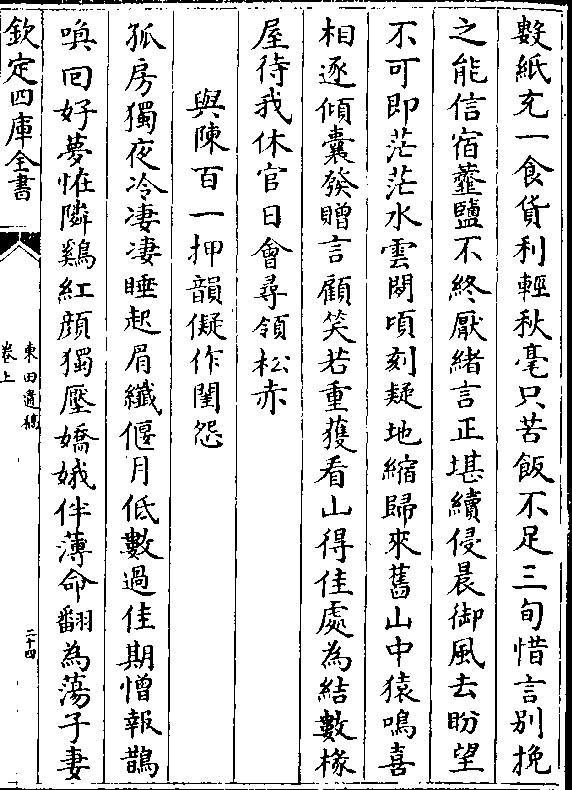 數紙充一食貨利輕秋毫只苦飯不足三旬惜言别挽
之能信宿虀鹽不終厭緒言正堪續侵晨御風去盼望
不可即茫茫水雲閒頃刻疑地縮歸來舊山中猿鳴喜
相逐傾囊發贈言顧笑若重獲看山得佳處為結數椽
屋待我休官日會尋領松赤
與陳百一押韻儗作閨怨
孤房獨夜冷凄凄睡起眉纖偃月低數過佳期憎報鵲
喚回好夢恠隣鷄紅顔獨壓嬌娥伴薄命翻為蕩子妻
欽定四庫全書
東田遺稿
卷上
二十四